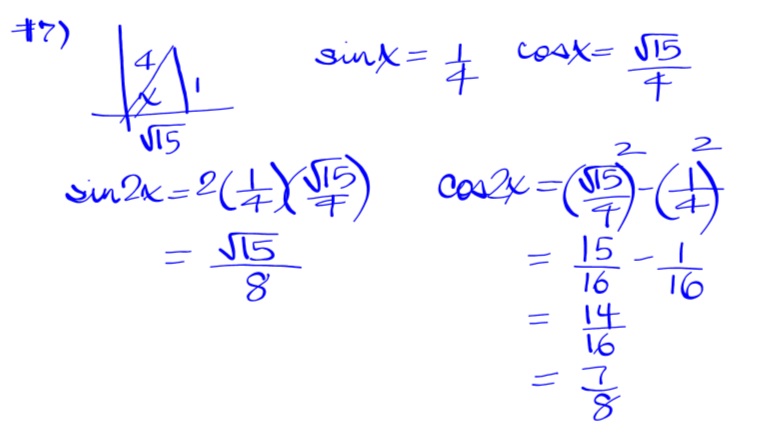 #7)
4
x
1
√15
sinx = 1/4 cosx = √15/4
sin2x = 2(1/4)(√15/4)
= √15/8
cos2x = (√15/4)² - (1/4)²
= 15/16 - 1/16
= 14/16
= 7/8